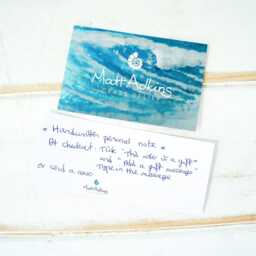 Matt Adkins
* Handwritten personal note *
At checkout. Tick "This order is a gift"
and "Add a gift message"
Type in the message
or send a
Matt Adkins